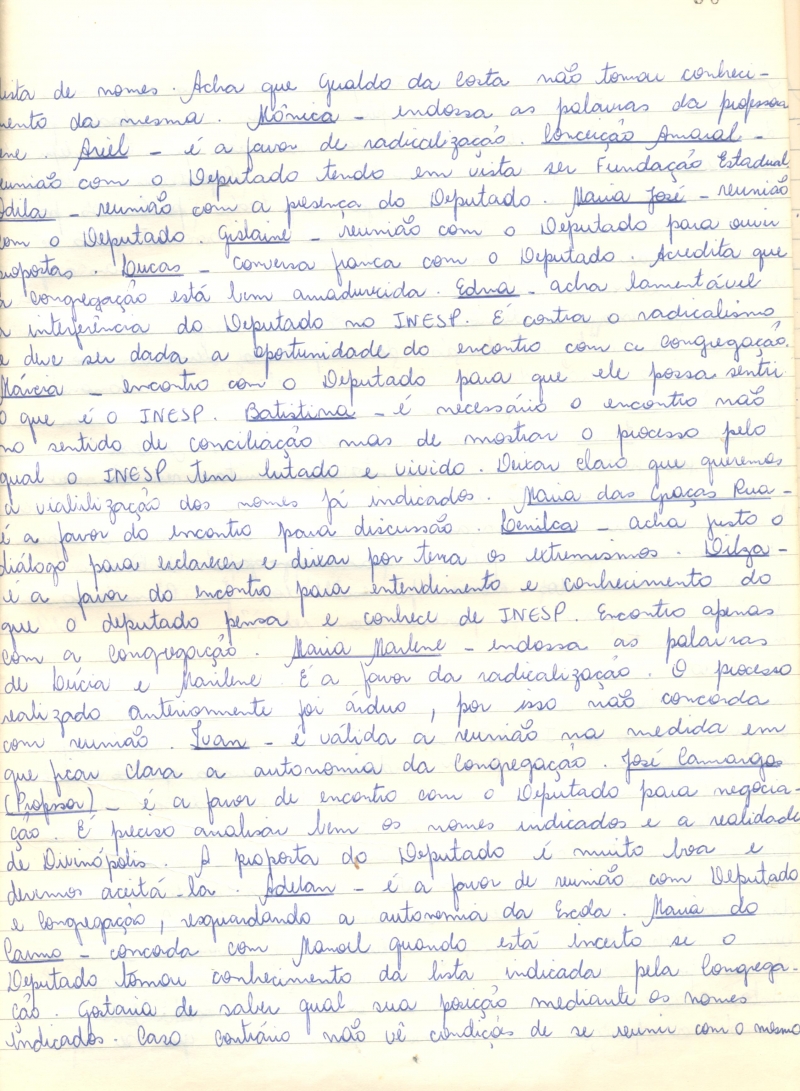 lista de nomes. Acha que Gualdo da Costa não tomou conheci-
mento da mesma. Mônica - endossa as palavras da professora
ene. Ariel - é a favor de radicalização. Conceição Amaral -
eunião com o Deputado tendo em vista ser Fundação Estadual
Odila - reunião com a presença do Deputado. Maria José - reunião
com o Deputado. Gislaine - reunião com o Deputado para ouvir
propostas. Lucas - conversa franca com o Deputado. Acredita que
a congregação está bem amadurecida. Edna - acha lamentável
a interferência do Deputado no INESP. É contra o radicalismo
e deve ser dada a oportunidade do encontro com a congregação.
Márcia - encontro com o Deputado para que ele possa sentir
o que é o INESP. Batistina - é necessário o encontro não
no sentido de conciliação mas de mostrar o processo pelo
qual o INESP tem lutado e vivido. Deixar claro que queremos
a viabilização dos nomes já indicados. Maria das Graças Rua -
é a favor do encontro para discussão. Denilca - acha justo o
diálogo para esclarecer e deixar por terra os extremismos. Dilza -
é a favor do encontro para entendimento e conhecimento do
que o deputado pensa e conhece de INESP. Encontro apenas
com a congregação. Maria Marlene - endossa as palavras
de Lúcia e Marilene. É a favor da radicalização. O processo
realizado anteriormente foi árduo, por isso não concorda
com reunião. Ivan - é válida a reunião na medida em
que ficar clara a autonomia da Congregação. José Camargo
(Professor) - é a favor de encontro com o Deputado para negocia-
ção. É preciso analisar bem os nomes indicados e a realidade
de Divinópolis. A proposta do Deputado é muito boa e
devemos aceitá-la. Adelan - é a favor de reunião com Deputado
e Congregação, resguardando a autonomia da Escola. Maria do
Carmo - concorda com Manoel quando está incerto se o
Deputado tomou conhecimento da lista indicada pela Congrega-
ção. Gostaria de saber qual sua posição mediante os nomes
indicados. Caso contrário não vê condições de se reunir com o mesmo